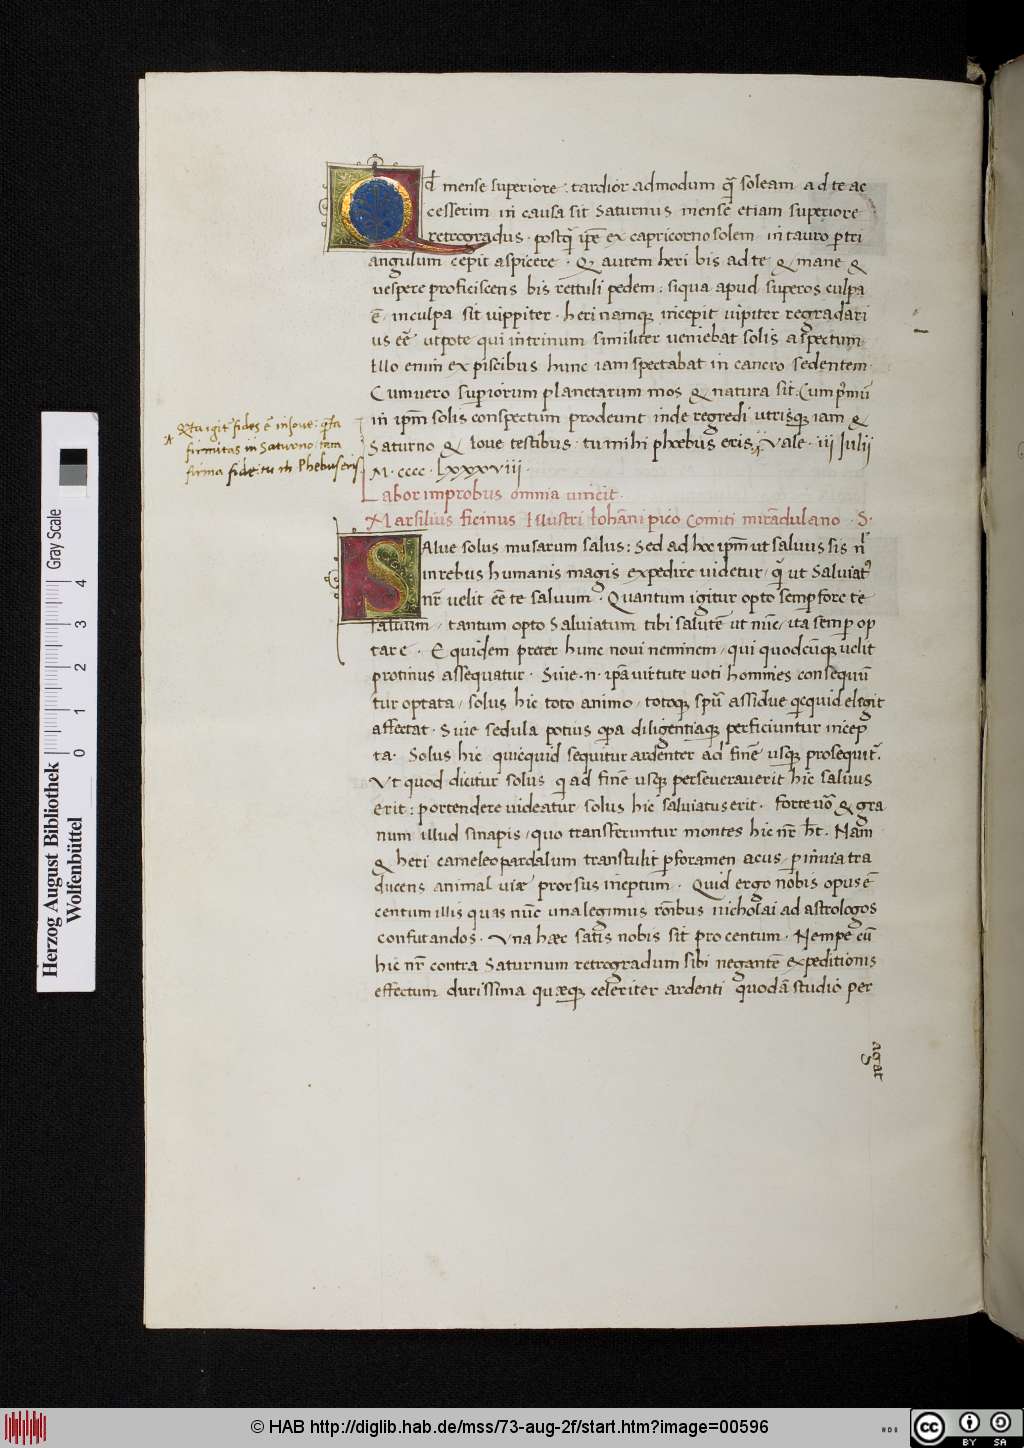 Qd mense superiore : tardior admodum q̃ soleam ad te ac
cesserim in causa sit Saturnus mense etiam superiore
retrogradus · postq̃ ip̃e ex capricorno solem in tauro p tri
angulum cepit aspicere · Q autem heri bis ad te & mane &
uespere proficiscens bis rettuli pedem : siqua apud superos culpa
ẽ / in culpa sit uippiter · heri namq; incepit uipiter regradari
us eẽ utpote qui in trinum similiter ueniebat solis aspectum
Illo enim ex piscibus hunc iam spectabat in cancro sedentem ·
Cum uero superiorum planetarum mos & natura sit · Cum primũ
in ip̃m solis conspectum prodeunt inde regredi utrisq; iam &
Saturno & Ioue testibus · tu mihi phœbus eris · Vale · iii Iulii
M · cccc · lxxxviii ·
firmitas in Saturno : tam
firma fide : tu m Phebus eris
Labor improbus omnia uincit ·
Marsilius ficinus Illustri Iohãni pico Comiti mirãdulano · S ·
SAlue solus musarum salus : Sed ad hoc ip̃m ut saluus sis nl
in rebus humanis magis expedire uidetur / q̃ ut Saluiat9
nr̃ uelit eẽ te saluum · Quantum igitur opto semp fore te
saluum / tantum opto Saluiatum tibi salutẽ ut nũc / ita semp op
tare · Equidem preter hunc noui neminem / qui quodcũq; uelit
protinus assequatur · Siue · n · ip̃a uirtute uoti homines consequũ
tur optata / solus hic toto animo / totoq; spũ assidue qcquid elegit
affectat · Siue sedula potius opa diligentiaq; perficiuntur incep
ta · Solus hic quicquid sequitur ardenter ad finẽ usq; prosequit̃ ·
Vt quod dicitur solus q ad finẽ usq; perseuerauerit hic saluus
erit : portendere uideatur solus hic saluiatus erit · Forte uõ & gra
num illud sinapis / quo transferuntur montes hic nr̃ h̃t · Nam
& heri cameleopardalum transtulit p foramen acus / p inuia tra
ducens animal uiæ prorsus ineptum · Quid ergo nobis opus ẽ
centum illis quas nũc una legimus rõnibus nicholai ad astrologos
confutandos · Vna hæc satis nobis sit pro centum · Nempe cũ
hic nr̃ contra Saturnum retrogradum sibi negantẽ expeditionis
effectum durissima quæq; celeriter ardenti quodã studio per
agat
Gray Scale
0 1 2 3 4
Herzog August Bibliothek
Wolfenbüttel
© HAB http://diglib.hab.de/mss/73-aug-2f/start.htm?image=00596
cc BY SA